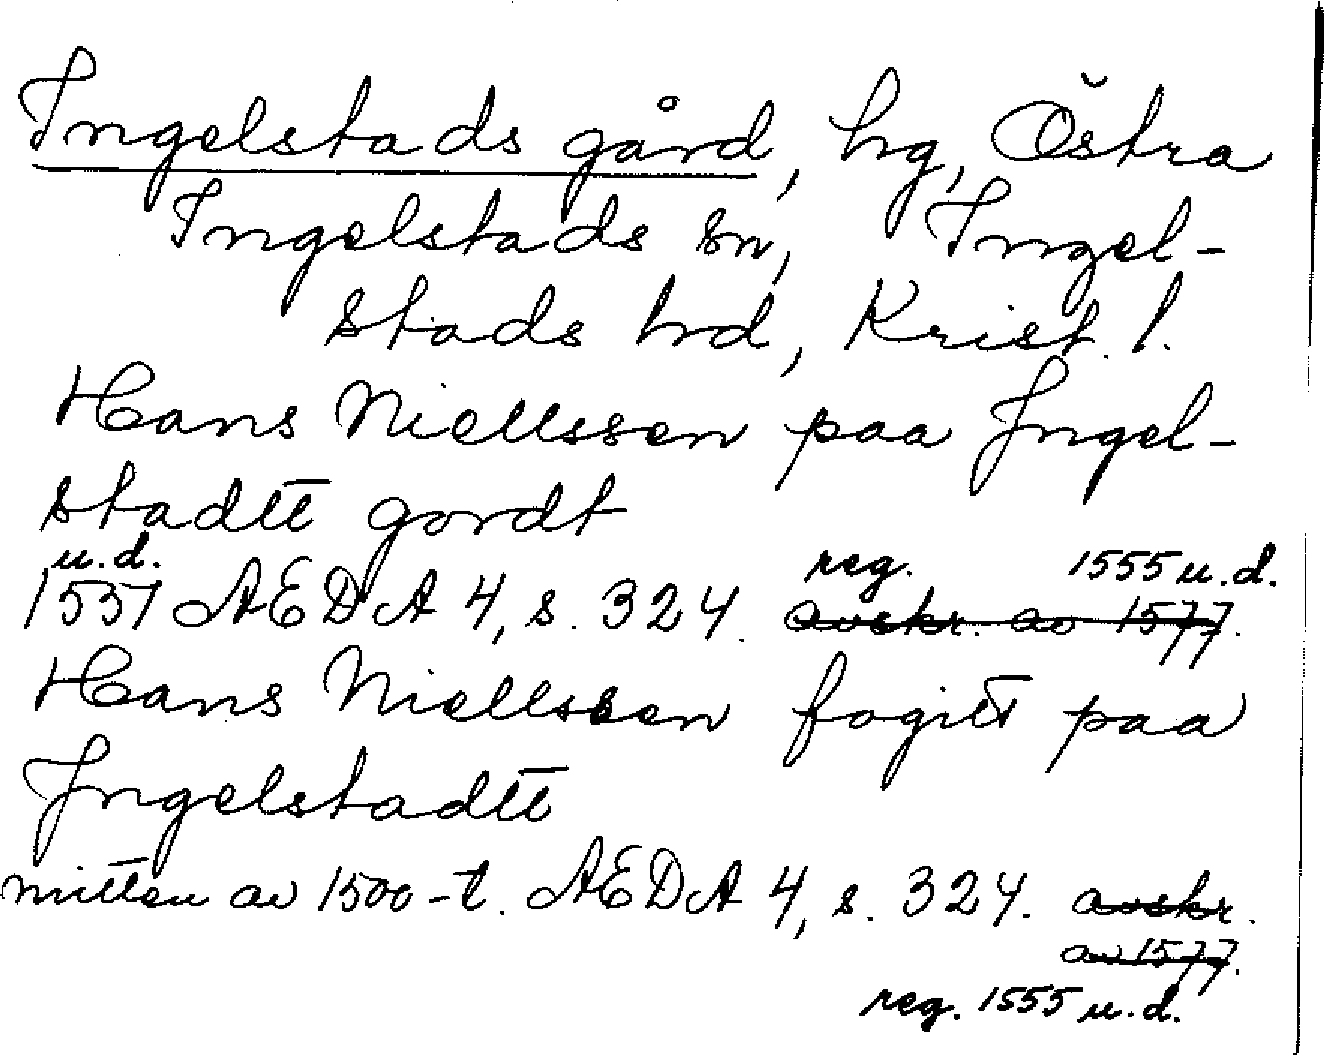 Ingelstads gård, hg, Östra
Ingelstads sn, Ingel-
stads hd, Krist. l.
Hans Niellssen paa Jngel-
stadtt gordt
u.d. reg. 1555 u.d.
1551 AEDA 4, s. 324. avskr. av 1577.
Hans Niellssen fogitt paa
Jngelstadtt
mitten av 1500-t. AEDA 4, s. 324. avskr.
av 1577.
reg. 1555 u.d.